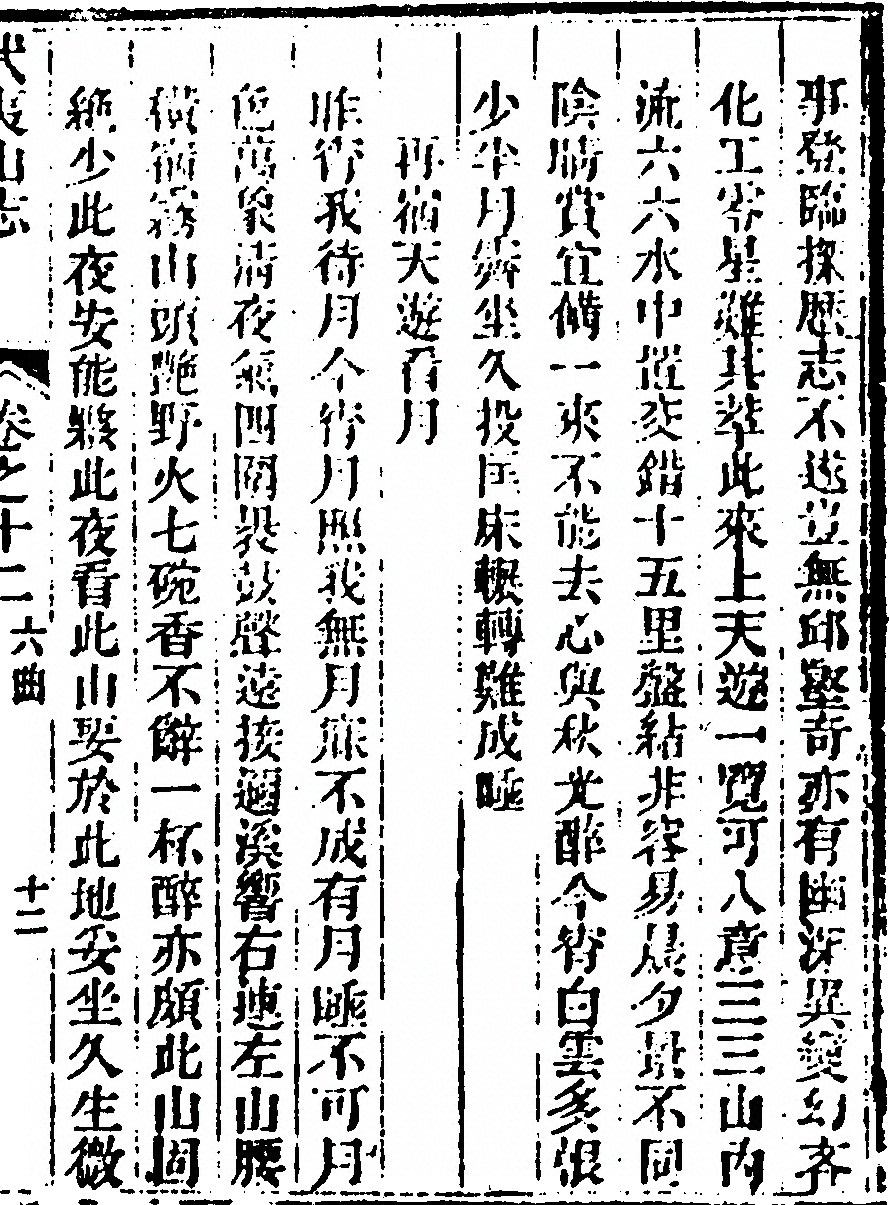 事登臨探歷志不遂豈無邱壑奇亦有幽深異變幻吝
化工零星難其萃此來上天遊一覽可八意三三山內
流六六水中置交錯十五里盤結非容易晨夕景不同
陰晴賞宜備一來不能去心與秋光醉今宵白雲多張
少半月嬌坐久投匡床輾轉難成睡
再宿天遊看月
昨宵我待月今宵月照我無月寐不成有月睡不可月
色萬象清夜氣四圍裊鼓聲遠接迴溪響右連左山腰
橫宿霧山頭艷野火七碗香不辭一杯醉亦頗此山固
絕少此夜安能夥此夜看此山要於此地妥坐久生微
武夷山志
卷之十二
六曲
十二